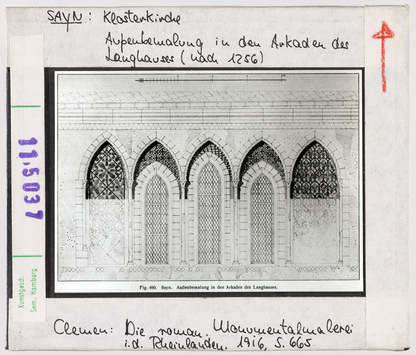 SAYN: Klosterkirche
Außenbemalung in den Arkaden des
Langhauses (nach 1256)
11,5037
Kunstgesch.
Sem. Hamburg
Fig. 400. Sayn. Außenbemalung in den Arkaden des Langhauses.
Clemen: Die roman. Monumentalmalerei
i.d. Rheinlanden. 1916, S. 665